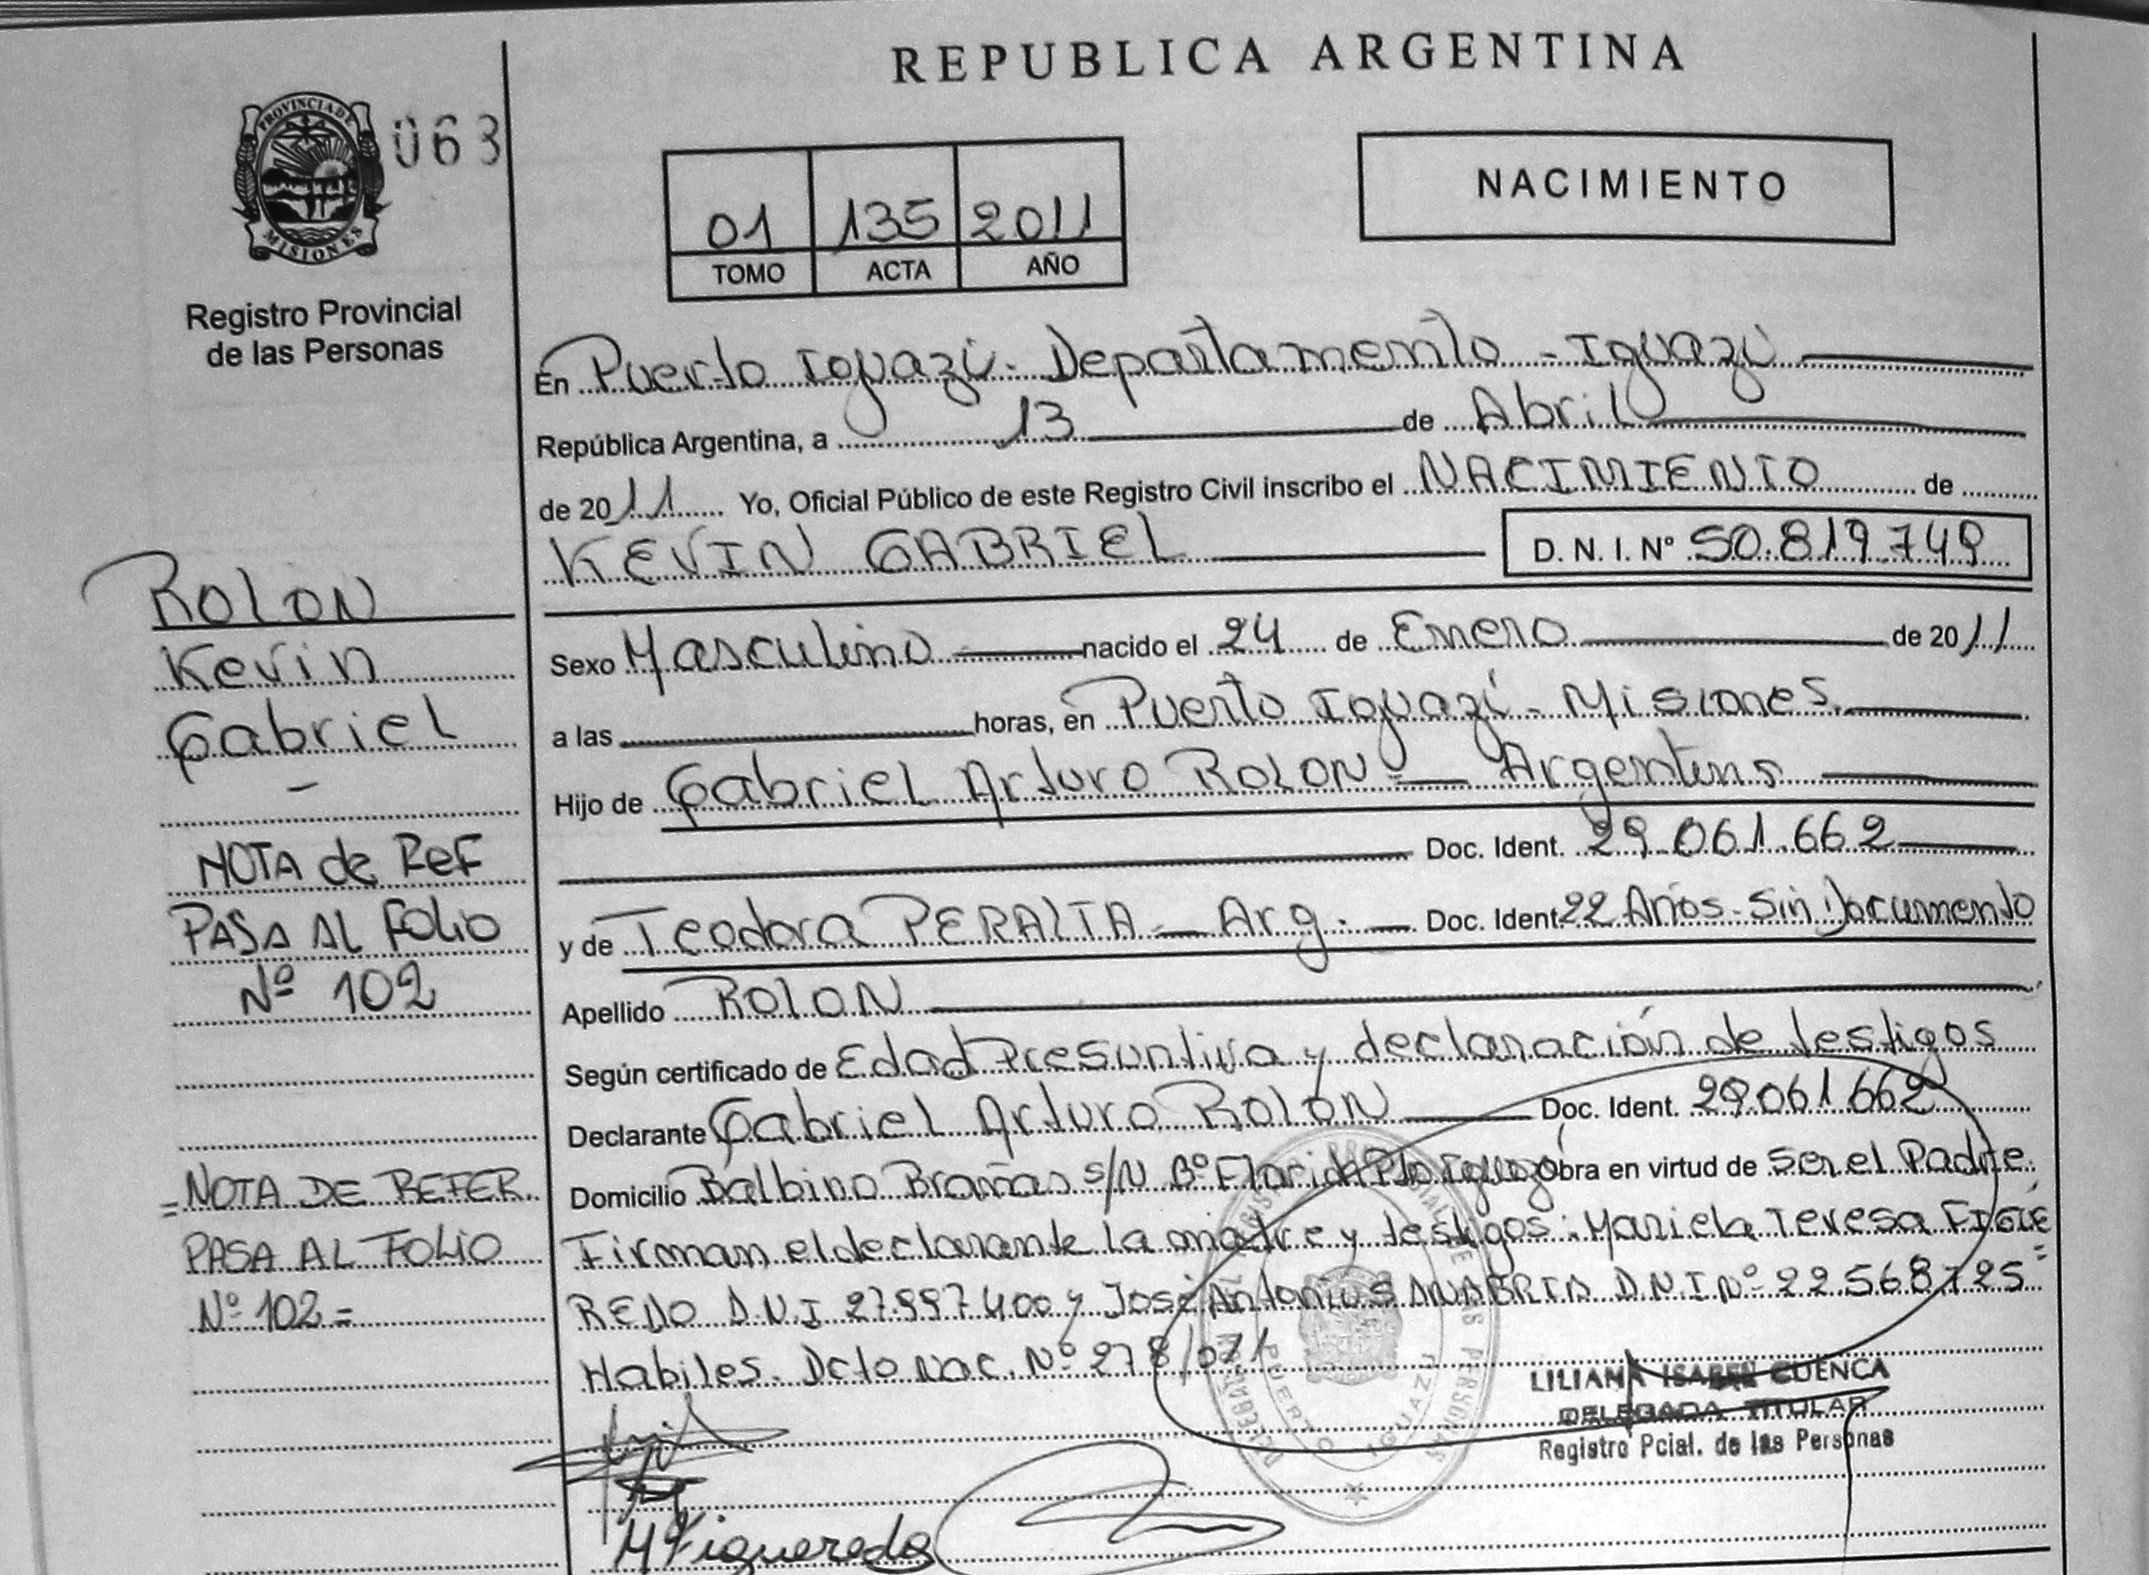 REPUBLICA ARGENTINA
PROVINCIA DE
MISIONES
063
Registro Provincial
de las Personas
01 135 2011
TOMO ACTA AÑO
NACIMIENTO
En Puerto Iguazú. Departamento - Iguazú
República Argentina, a 13 de Abril
de 2011 Yo, Oficial Público de este Registro Civil inscribo el NACIMIENTO de
KEVIN GABRIEL D. N. I. Nº 50.819.749
Sexo Masculino nacido el 24 de Enero de 2011
a las horas, en Puerto Iguazú - Misiones.
Hijo de Gabriel Arturo ROLON - Argentino
Doc. Ident. 29.061.662
y de Teodora PERALTA - Arg. - Doc. Ident. 22 Años. Sin documento
Apellido ROLON
Según certificado de Edad Presuntiva y declaración de testigos
Declarante Gabriel Arturo Rolón Doc. Ident. 29061662
Domicilio Balbino Brañas s/N Bº Florida Pto Iguazú Obra en virtud de ser el Padre.
Firman el declarante la madre y testigos: Mariela Teresa FIGUE
REDO D.N.I 27.997.400 y José Antonio SANABRIA D.N.I Nº 22.568.725
Habiles. Dcto Nac. Nº 278/071
ROLON
Kevin
Gabriel
-
NOTA de Ref
PASA AL FOLIO
Nº 102
= NOTA DE REFER.
PASA AL FOLIO
Nº 102 =
LILIANA ISABEL CUENCA
DELEGADA TITULAR
Registro Pcial. de las Personas
PUERTO IGUAZU
M Figueredo